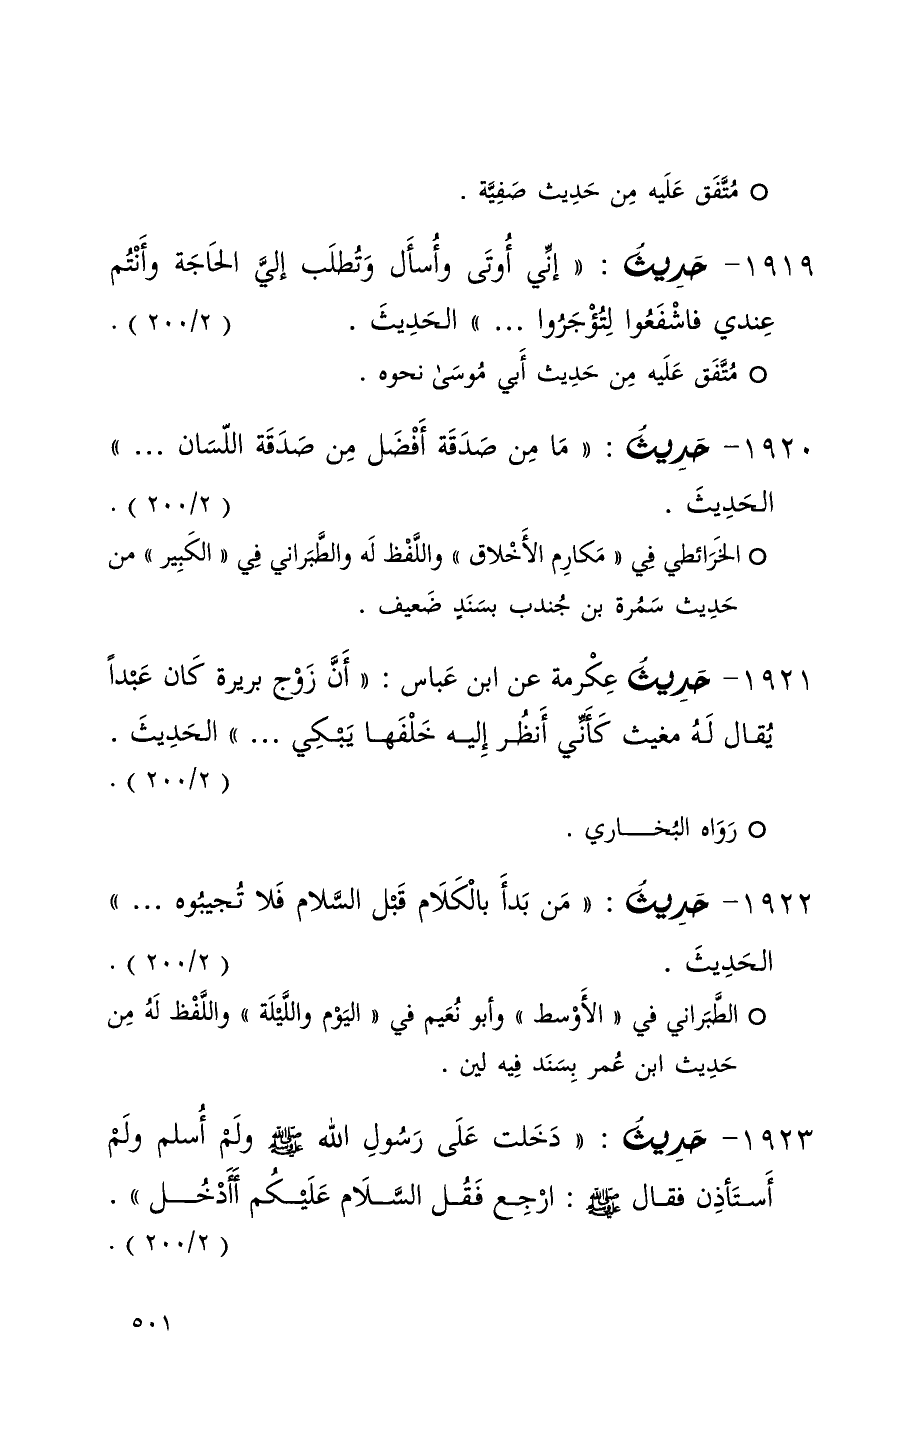 ○ مُتَّفَق عَلَيه مِن حَدِيث صَفِيَّة .
١٩١٩- حَدِيثُ : « إنِّي أُوتَى وأُسأَل وَتُطلَب إليَّ الحَاجَة وأَنْتُم
عِندي فاشْفَعُوا لِتُؤْجَرُوا ... » الحَدِيثَ . ( ٢٠٠/٢ ) .
○ مُتَّفَق عَلَيه مِن حَدِيث أَبي مُوسَىٰ نحوه .
١٩٢٠- حَدِيثُ : « مَا مِن صَدَقَة أَفْضَل مِن صَدَقَة اللّسَان ... »
الحَدِيثَ . ( ٢٠٠/٢ ) .
○ الخَرَائطي فِي « مَكارِم الأَخْلاق » واللَّفْظ لَه والطَّبَراني فِي « الكَبِير » من
حَدِيث سَمُرة بن جُندب بسَنَدٍ ضَعيف .
١٩٢١- حَدِيثُ عِكْرمة عن ابن عَباس : « أَنَّ زَوْج بريرة كَان عَبْداً
يُقال لَهُ مغيث كَأَنِّي أَنظُر إِليه خَلْفَها يَبْكِي ... » الحَدِيثَ .
( ٢٠٠/٢ ) .
○ رَوَاه البُخاري .
١٩٢٢- حَدِيثُ : « مَن بَدأَ بالْكَلَام قَبْل السَّلام فَلا تُجيبُوه ... »
الحَدِيثَ . ( ٢٠٠/٢ ) .
○ الطَّبَراني في « الأَوْسط » وأبو نُعَيم في « اليَوْم واللَّيْلَة » واللَّفْظ لَهُ مِن
حَدِيث ابن عُمر بِسَنَد فِيه لين .
١٩٢٣- حَدِيثُ : « دَخَلت عَلَى رَسُولِ الله ﷺ ولَمْ أُسلم ولَمْ
أَستَأذِن فقال ﷺ : ارْجِع فَقُل السَّلَام عَلَيْكُم أَأَدْخُل » .
( ٢٠٠/٢ ) .
٥٠١